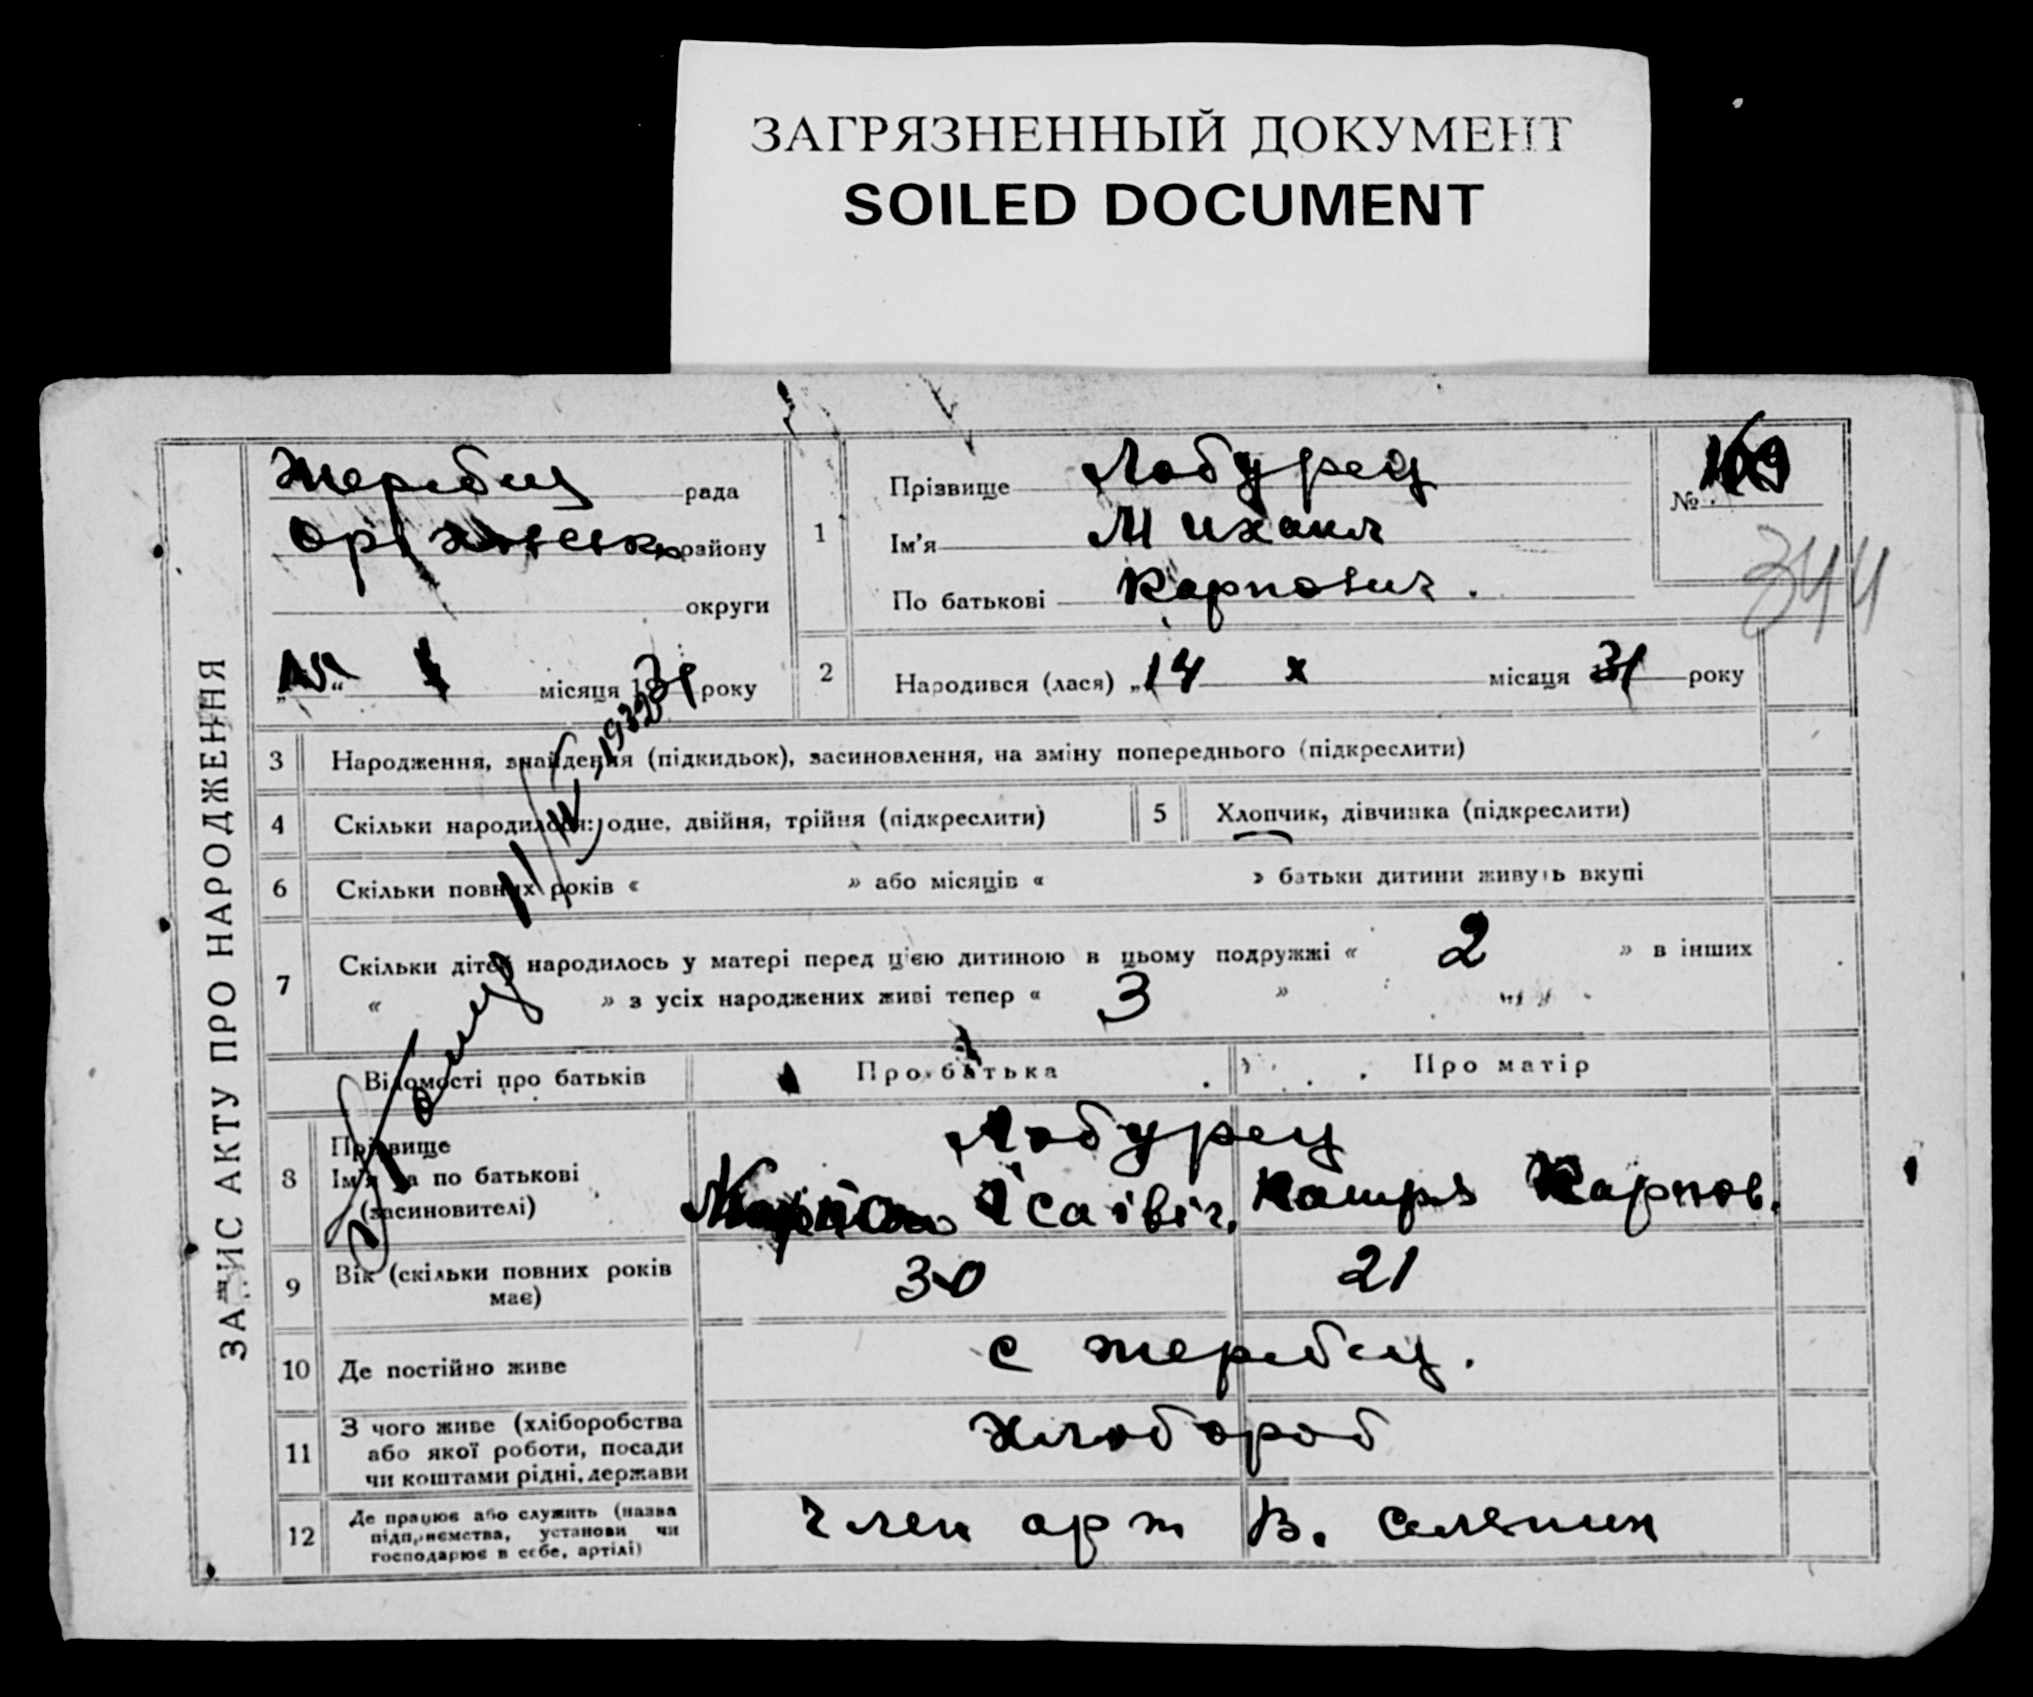 ЗАГРЯЗНЕННЫЙ ДОКУМЕНТ
SOILED DOCUMENT
ЗАПИС АКТУ ПРО НАРОДЖЕННЯ
Жеребец рада
району
округи
місяця 31 року
1
Прізвище Лобурец
Ім'я Михаил
По батькові Карпович.
№ 169
344
2 Народився (лася) „14 X місяця 31 року
3 Народження, знайдення (підкидьок), засиновлення, на зміну попереднього (підкреслити)
4 Скільки народилося: одне, двійня, трійня (підкреслити)
5 Хлопчик, дівчинка (підкреслити)
6 Скільки повних років « » або місяців « » батьки дитини живуть вкупі
7 Скільки дітей народилось у матері перед цією дитиною в цьому подружжі « 2 » в інших
« » з усіх народжених живі тепер « 3 »
1932
Відомості про батьків Про батька Про матір
8 Прізвище
Ім'я та по батькові
(засиновителі)
Лобурец
Ісаівіч. Катря Карпов.
9 Вік (скільки повних років має) 30 21
10 Де постійно живе с Жеребец.
11 З чого живе (хліборобства
або якої роботи, посади
чи коштами рідні, держави
Хлобороб
12 Де працює або служить (назва
підприємства, установи чи
господарює в себе, артілі)
Член арт В.